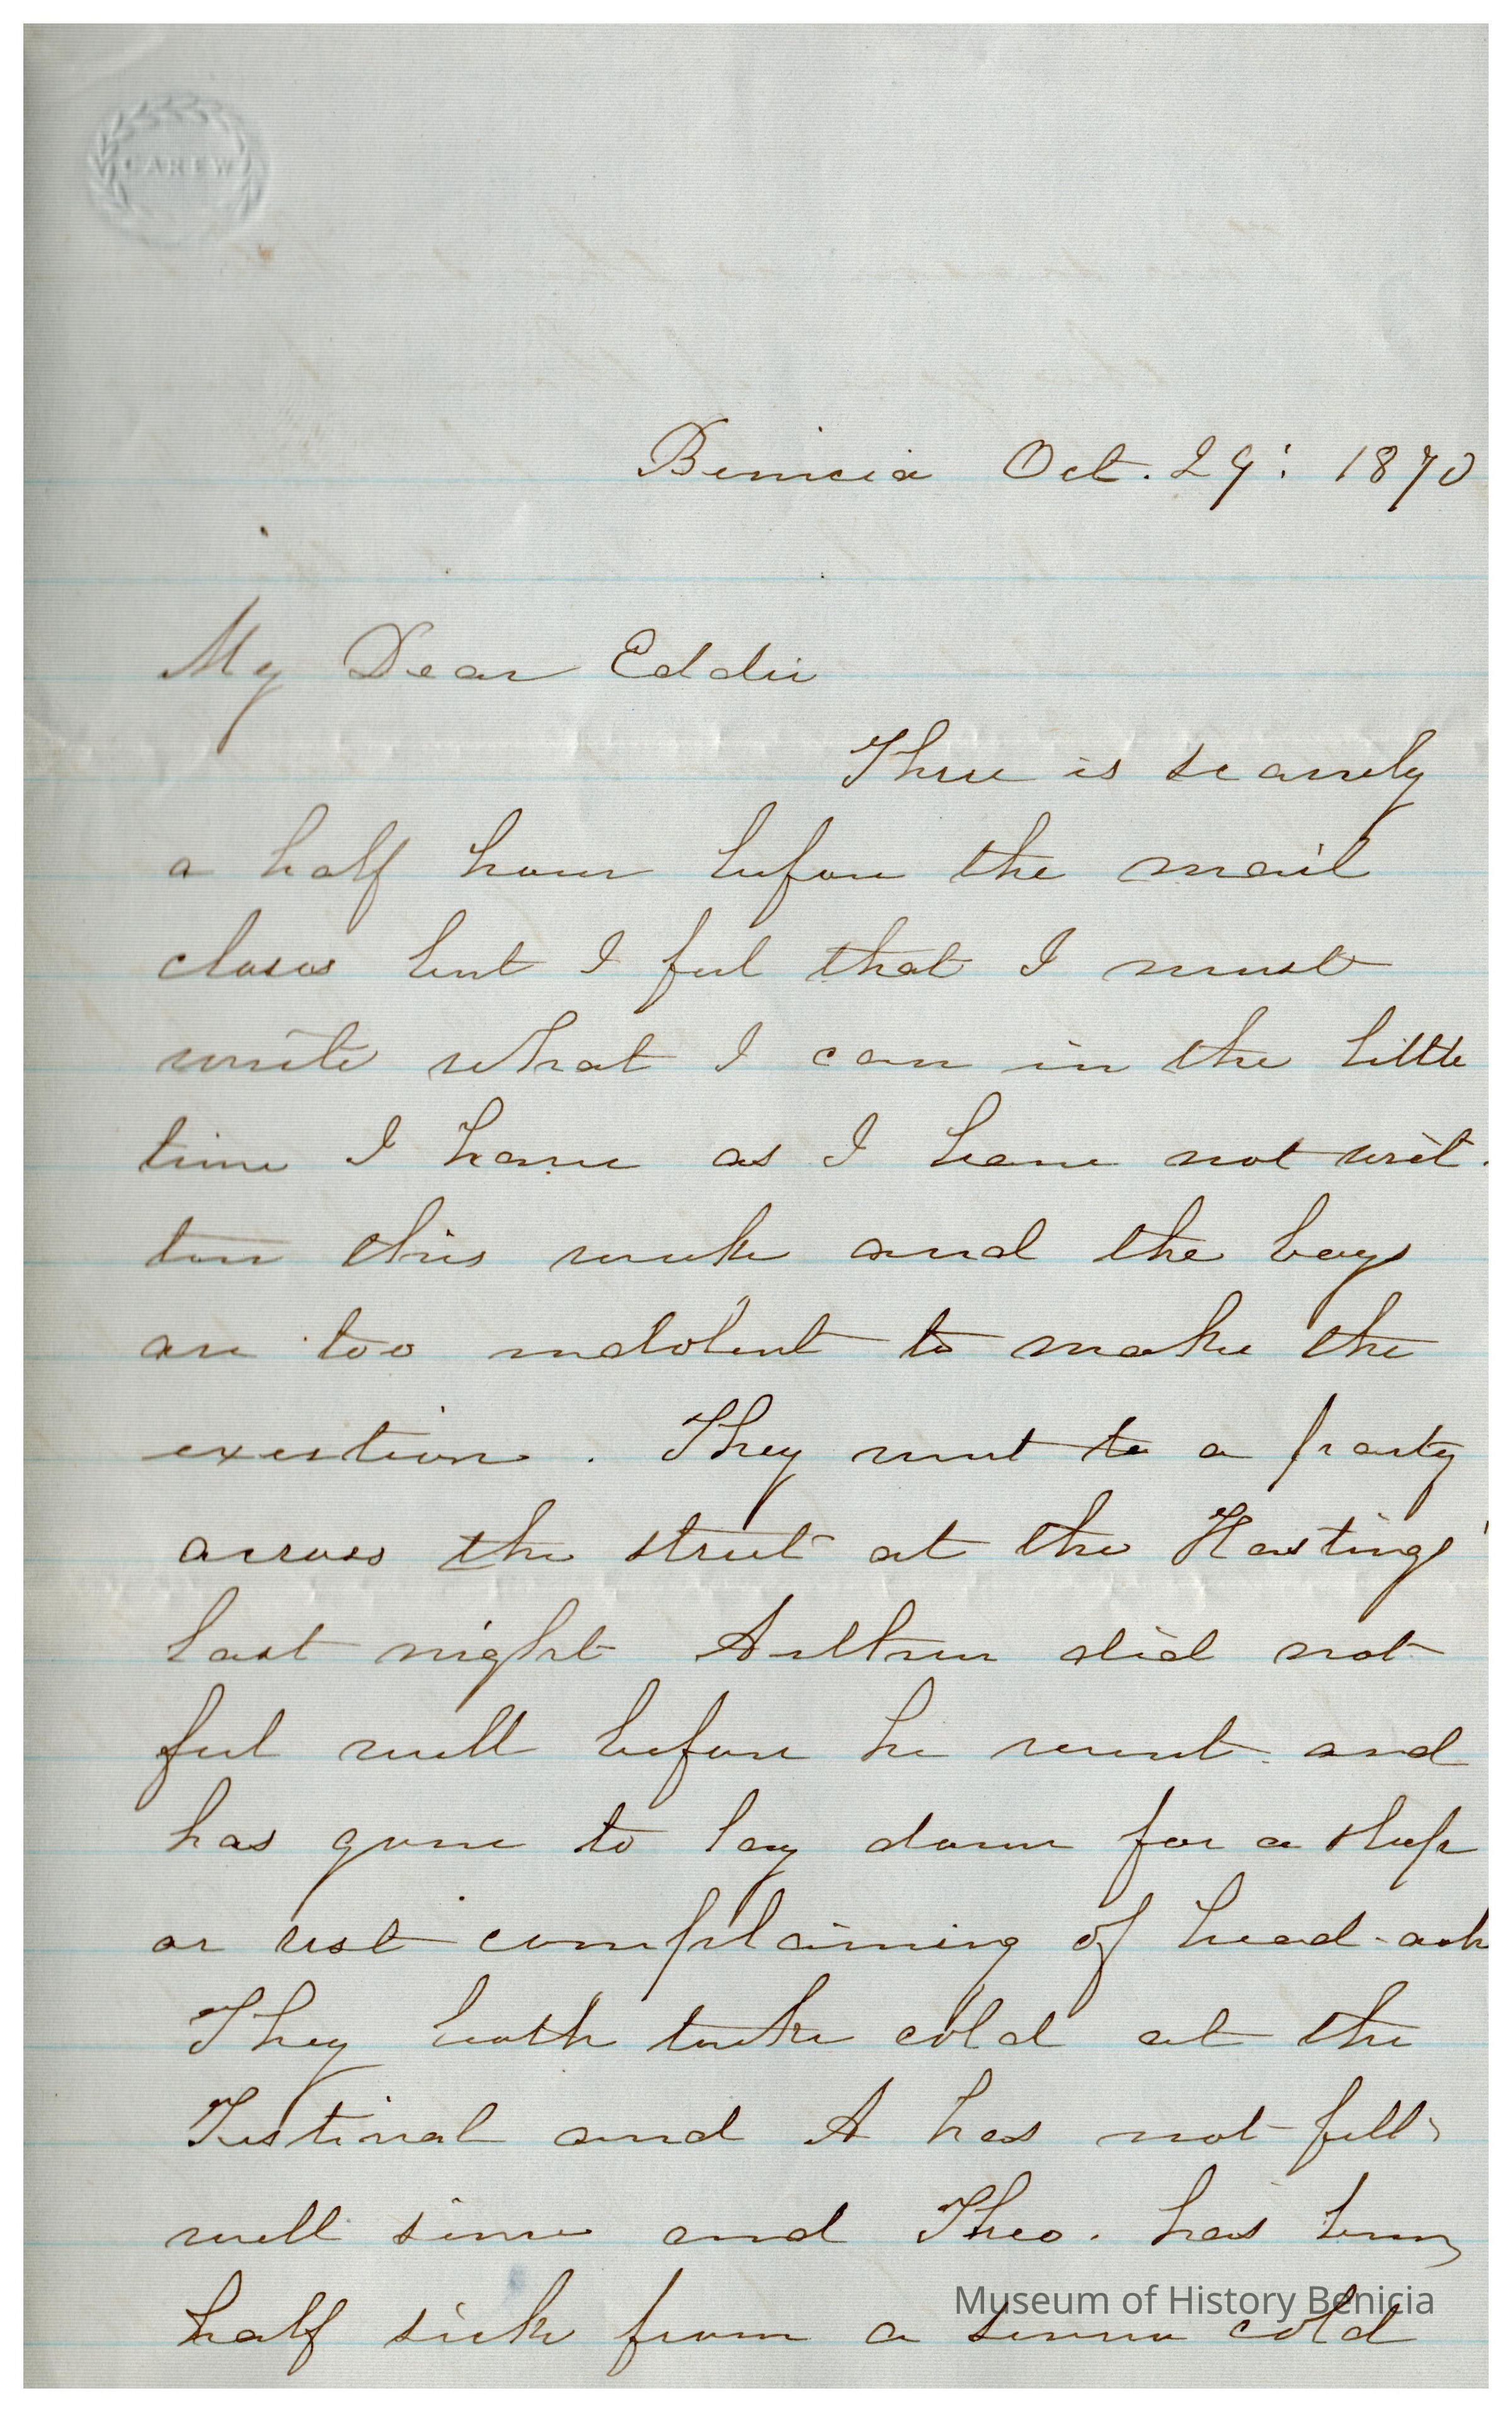 CAREW
Benicia Oct. 29: 1870
My Dear Eddie
There is scarcely
a half hour before the mail
closes but I feel that I must
write what I can in the little
time I have as I have not writ-
ten this week and the boys
are too indolent to make the
exertion. They went to a party
across the street at the Hastings'
last night Arthur did not
feel well before he went and
has gone to lay down for a sleep
or rest complaining of head-ach
They both take cold at the
Festival and A has not felt
well since and Theo. has been
half sick from a severe cold
Museum of History Benicia